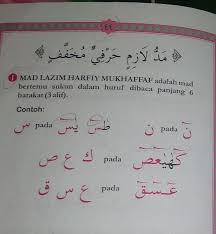 ٤٤
مَدُّ لَازِمٍ حَرْفِيٌّ مُخَفَّفٌ
1 MAD LAZIM HARFIY MUKHAFFAF adalah mad
bertemu sukun dalam huruf dibaca panjang 6
harakat (3 alif).
Contoh:
نٓ pada ن طٰسٓ يٰسٓ pada س
كٓهٰيٰعٓصٓ pada ك ع ص
عٓسٓقٓ pada ع س ق